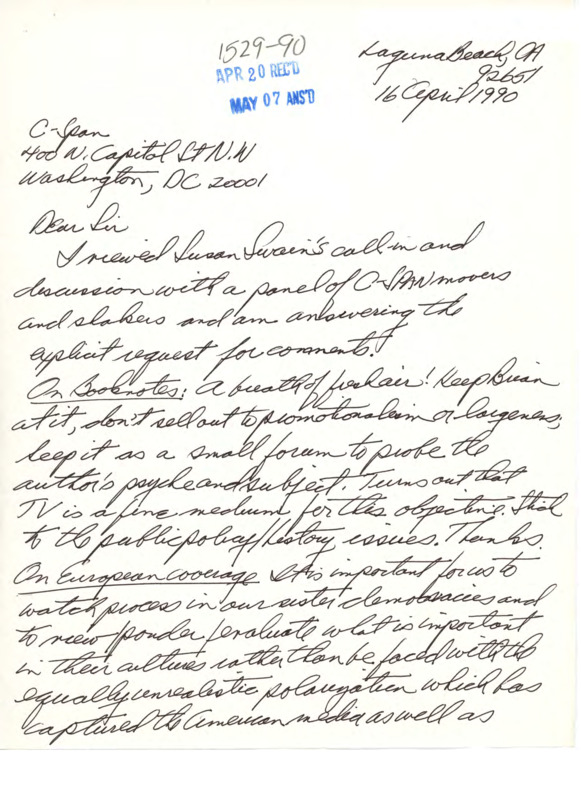 1529-90
APR 20 REC'D
MAY 07 ANS'D
Laguna Beach, CA
92651
16 April 1990
C-Span
400 N. Capitol St N.W
Washington, DC 20001
Dear Sir
I viewed Susan Swain's call-in and
discussion with a panel of C-SPAN movers
and shakers and am answering the
explicit request for comments!
On Booknotes: A breath of fresh air! Keep Brian
at it, don't sell out to promotionalism or largeness;
keep it as a small forum to probe the
author's psyche and subject. Turns out that
TV is a fine medium for this objective. Stick
to the public policy/history issues. Thanks.
On European coverage It is important for us to
watch process in our sister democracies and
to view/ponder/evaluate what is important
in their cultures rather than be faced with the
equally unrealistic polarization which has
captured the American media as well as